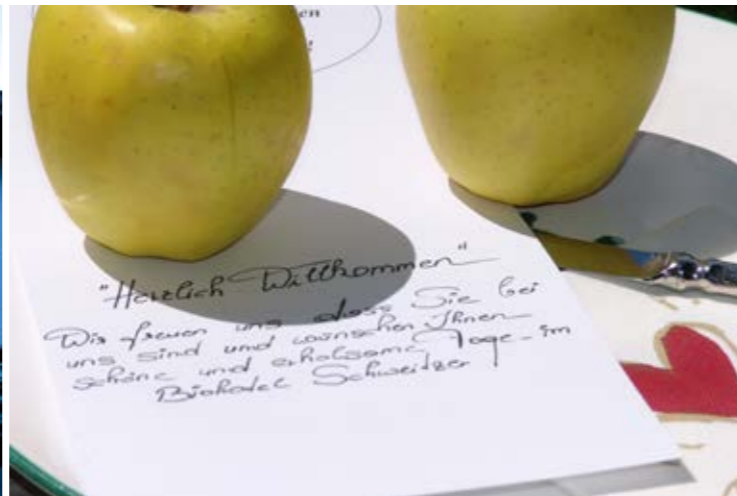 en
!
"Herzlich Willkommen"
Wir freuen uns dass Sie bei
uns sind und wünschen Ihnen
schöne und erholsame Tage im
Biohotel Schweitzer